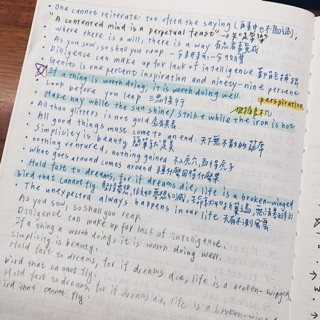 • One cannot reiterate too often the saying (再重申也不為過),
"A contented mind is a perpetual feast" → 知足常樂
• Where there is a will, there is a way 有志者事竟成
• As you sow, so shall you reap 一分耕耘一分收穫
• Diligence can make up for lack of intelligence 勤能補拙
• Genius is one percent inspiration and ninety-nine percent
perspiration
If a thing is worth doing, it is worth doing well.
• Look before you leap 三思後行
• Make hay while the sun shine / strike while the iron is hot
• All that glitters is not gold
• All good things must come to an end. 天下無不散的筵席
• Simplicity is beauty 簡單就是美
• nothing ventured, nothing gained 不入虎穴,焉得虎子
• What goes around comes around
• Hold fast to dreams, for if dreams die, life is a broken-winged
bird that cannot fly.
• The unexpected always happens in our life 天有不測風雲
As you sow, so shall you reap.
Diligence can make up for lack of intelligence.
If a thing is worth doing, it is worth doing well.
Simplicity is beauty.
Hold fast to dreams, for if dreams die, life is a broken-winged
bird that cannot fly.
Hold fast to dreams for if dreams die, life is a broken-winged
bird that cannot fly